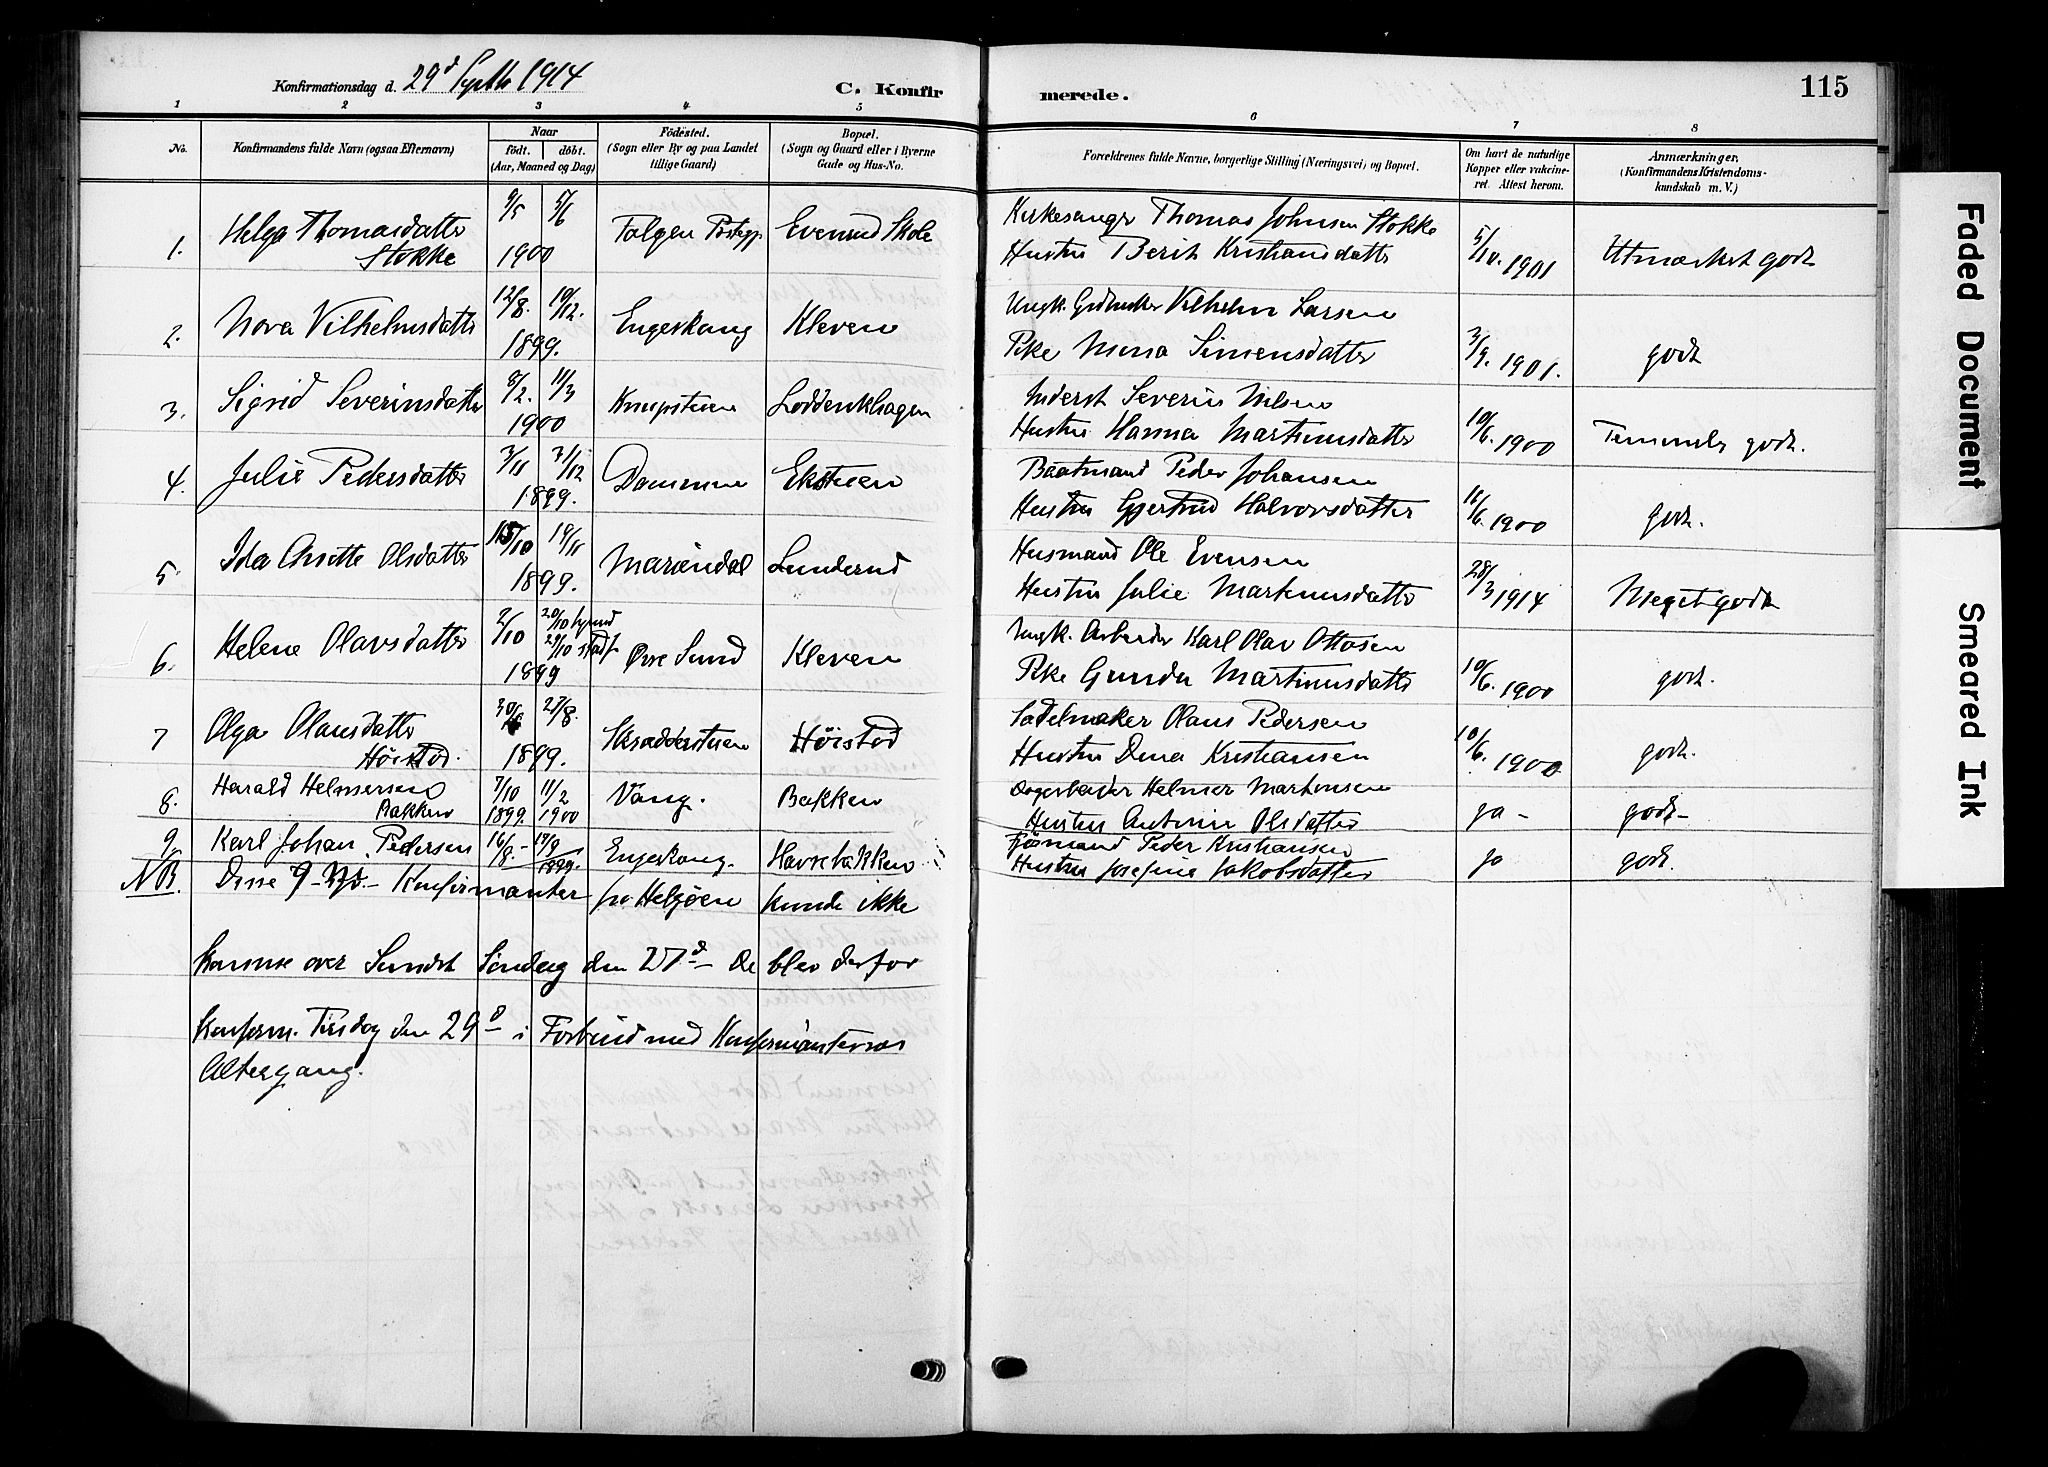 Konfirmationsdag d. 29d Septb 1914
C. Konfirmerede.
115
1 2 3 4 5 6 7 8
No.
Konfirmandens fulde Navn (ogsaa Efternavn)
Naar
født. døbt.
(Aar, Maaned og Dag)
Fødested.
(Sogn eller By og paa Landet
tillige Gaard)
Bopæl.
(Sogn og Gaard eller i Byerne
Gade og Hus-No.
Forældrenes fulde Navne, borgerlige Stilling (Næringsvei) og Bopæl.
Om havt de naturlige
Kopper eller vakcine-
ret. Attest herom.
Anmærkninger.
(Konfirmandens Kristendoms-
kundskab m. V.)
1. Helga Thomasdatter Stokke 9/5 5/6 1900 Tolgen Prstgj. Evenrud Skole
Kirkesanger Thomas Johnsen Stokke
Hustru Berit Kristiansdatter 5/10. 1901 Utmærket godt
2. Nora Vilhelmsdatter 12/8. 10/12. 1899. Engeskaug Kleven
Ungk. Vilhelm Larsen
Pike Mina Simensdatter 3/9. 1901. godt
3. Sigrid Severinsdatter 8/2. 11/3 1900 Knupstuen Loddenkhagen
Inderst Severin Nilsen
Hustru Hanna Martinusdatter 10/6. 1900 Temmelig godt.
4. Julie Pedersdatter 3/11 31/12 1899. Dammen Ekstuen
Baatmand Peder Johansen
Hustru Gjertrud Halvorsdatter 16/6. 1900 godt.
5. Ida Anette Olsdatter 15/10 19/11 1899. Mariendal Lunderud
Husmand Ole Evensen
Hustru Julie Martinusdatter 28/3 1914 Meget godt
6. Helene Olavsdatter 2/10 20/10 hjemd 29/10 stadf 1899 Øvre Sund Kleven
Ungk. Arbeider Karl Olav Ottosen
Pike Gunda Martinusdatter 10/6. 1900 godt.
7 Olga Olausdatter Høistad. 30/6 27/8. 1899. Skrædderstuen Høistad
Sadelmaker Olaus Pedersen
Hustru Dina Kristiansen 10/6. 1900 godt.
8. Harald Helmersen Bakken 7/10 1899. 11/2 1900 Vang. Bakken
Dagarbeider Helmer Martinsen
Hustru Antonie Olsdatter ja - godt-
9. Karl Johan Pedersen 16/8.- 17/9 1899. Engeskaug. Havrebakken
Sjømand Peder Kristiansen
Hustru Josefine Jakobsdatter ja godt.
NB. Disse 9-ni- Konfirmanter fra Helgøen kunde ikke
komme over Sundet Søndag den 27d - De blev derfor
konfirm. Tirsdag den 29d i Forbind med Konfirmanternes
Altergang.
Faded Document
Smeared Ink